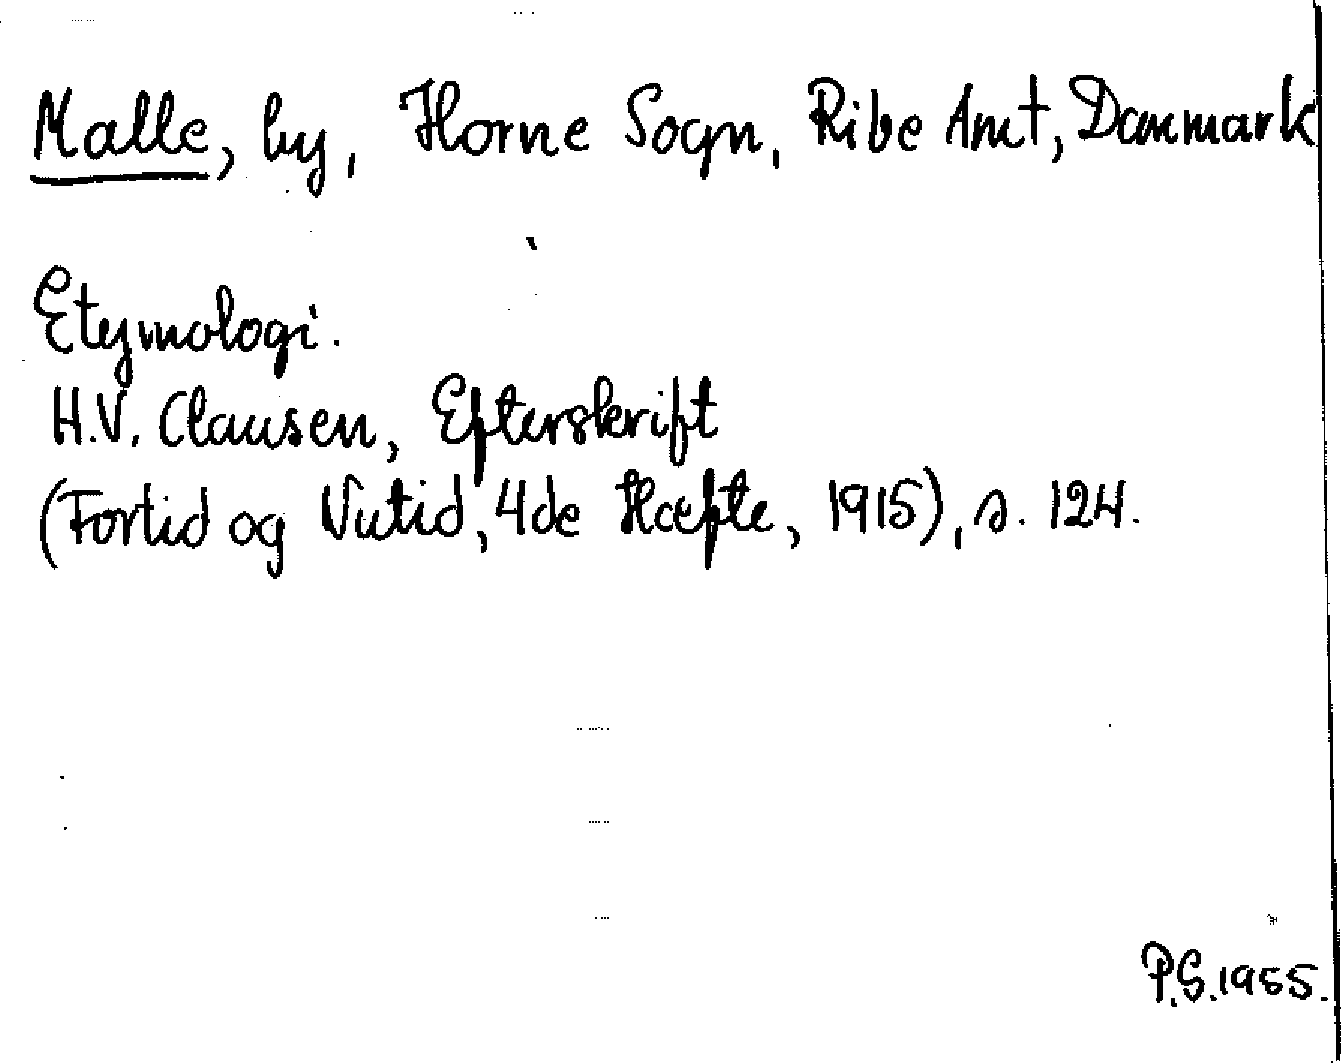 Malle, by, Horne Sogn, Ribe Amt, Danmark
Etymologi.
H.V. Clausen, Efterskrift
(Fortid og Nutid, 4de Hæfte, 1915), s. 124.
P.S. 1955.